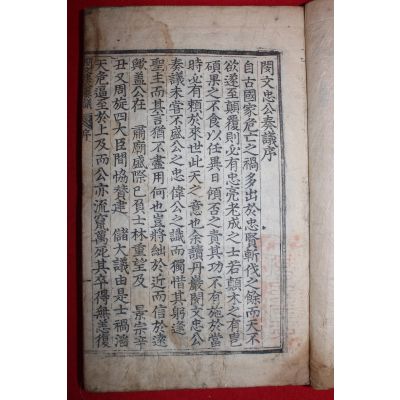 閔文忠公奏議序
自古國家危亡之禍多出於忠賢斬伐之餘而天不
欲遂至顚覆則必有忠亮老成之士若顚木之有甹
碩果之不食以任異日傾否之責其功不有施於當
時必有賴於來世此天之意也余讀丹巖閔文忠公
奏議未嘗不盛公之忠偉公之識而獨惜其躬逢
聖主而其言猶不盡用何也豈將絀於近而信於遠
歟盖公在 肅廟盛際已負士林重望及 景宗辛
丑又周旋四大臣間協贊建 儲大議由是士禍滔
天危逼至於上及而公亦流竄萬死其卒得無恙復